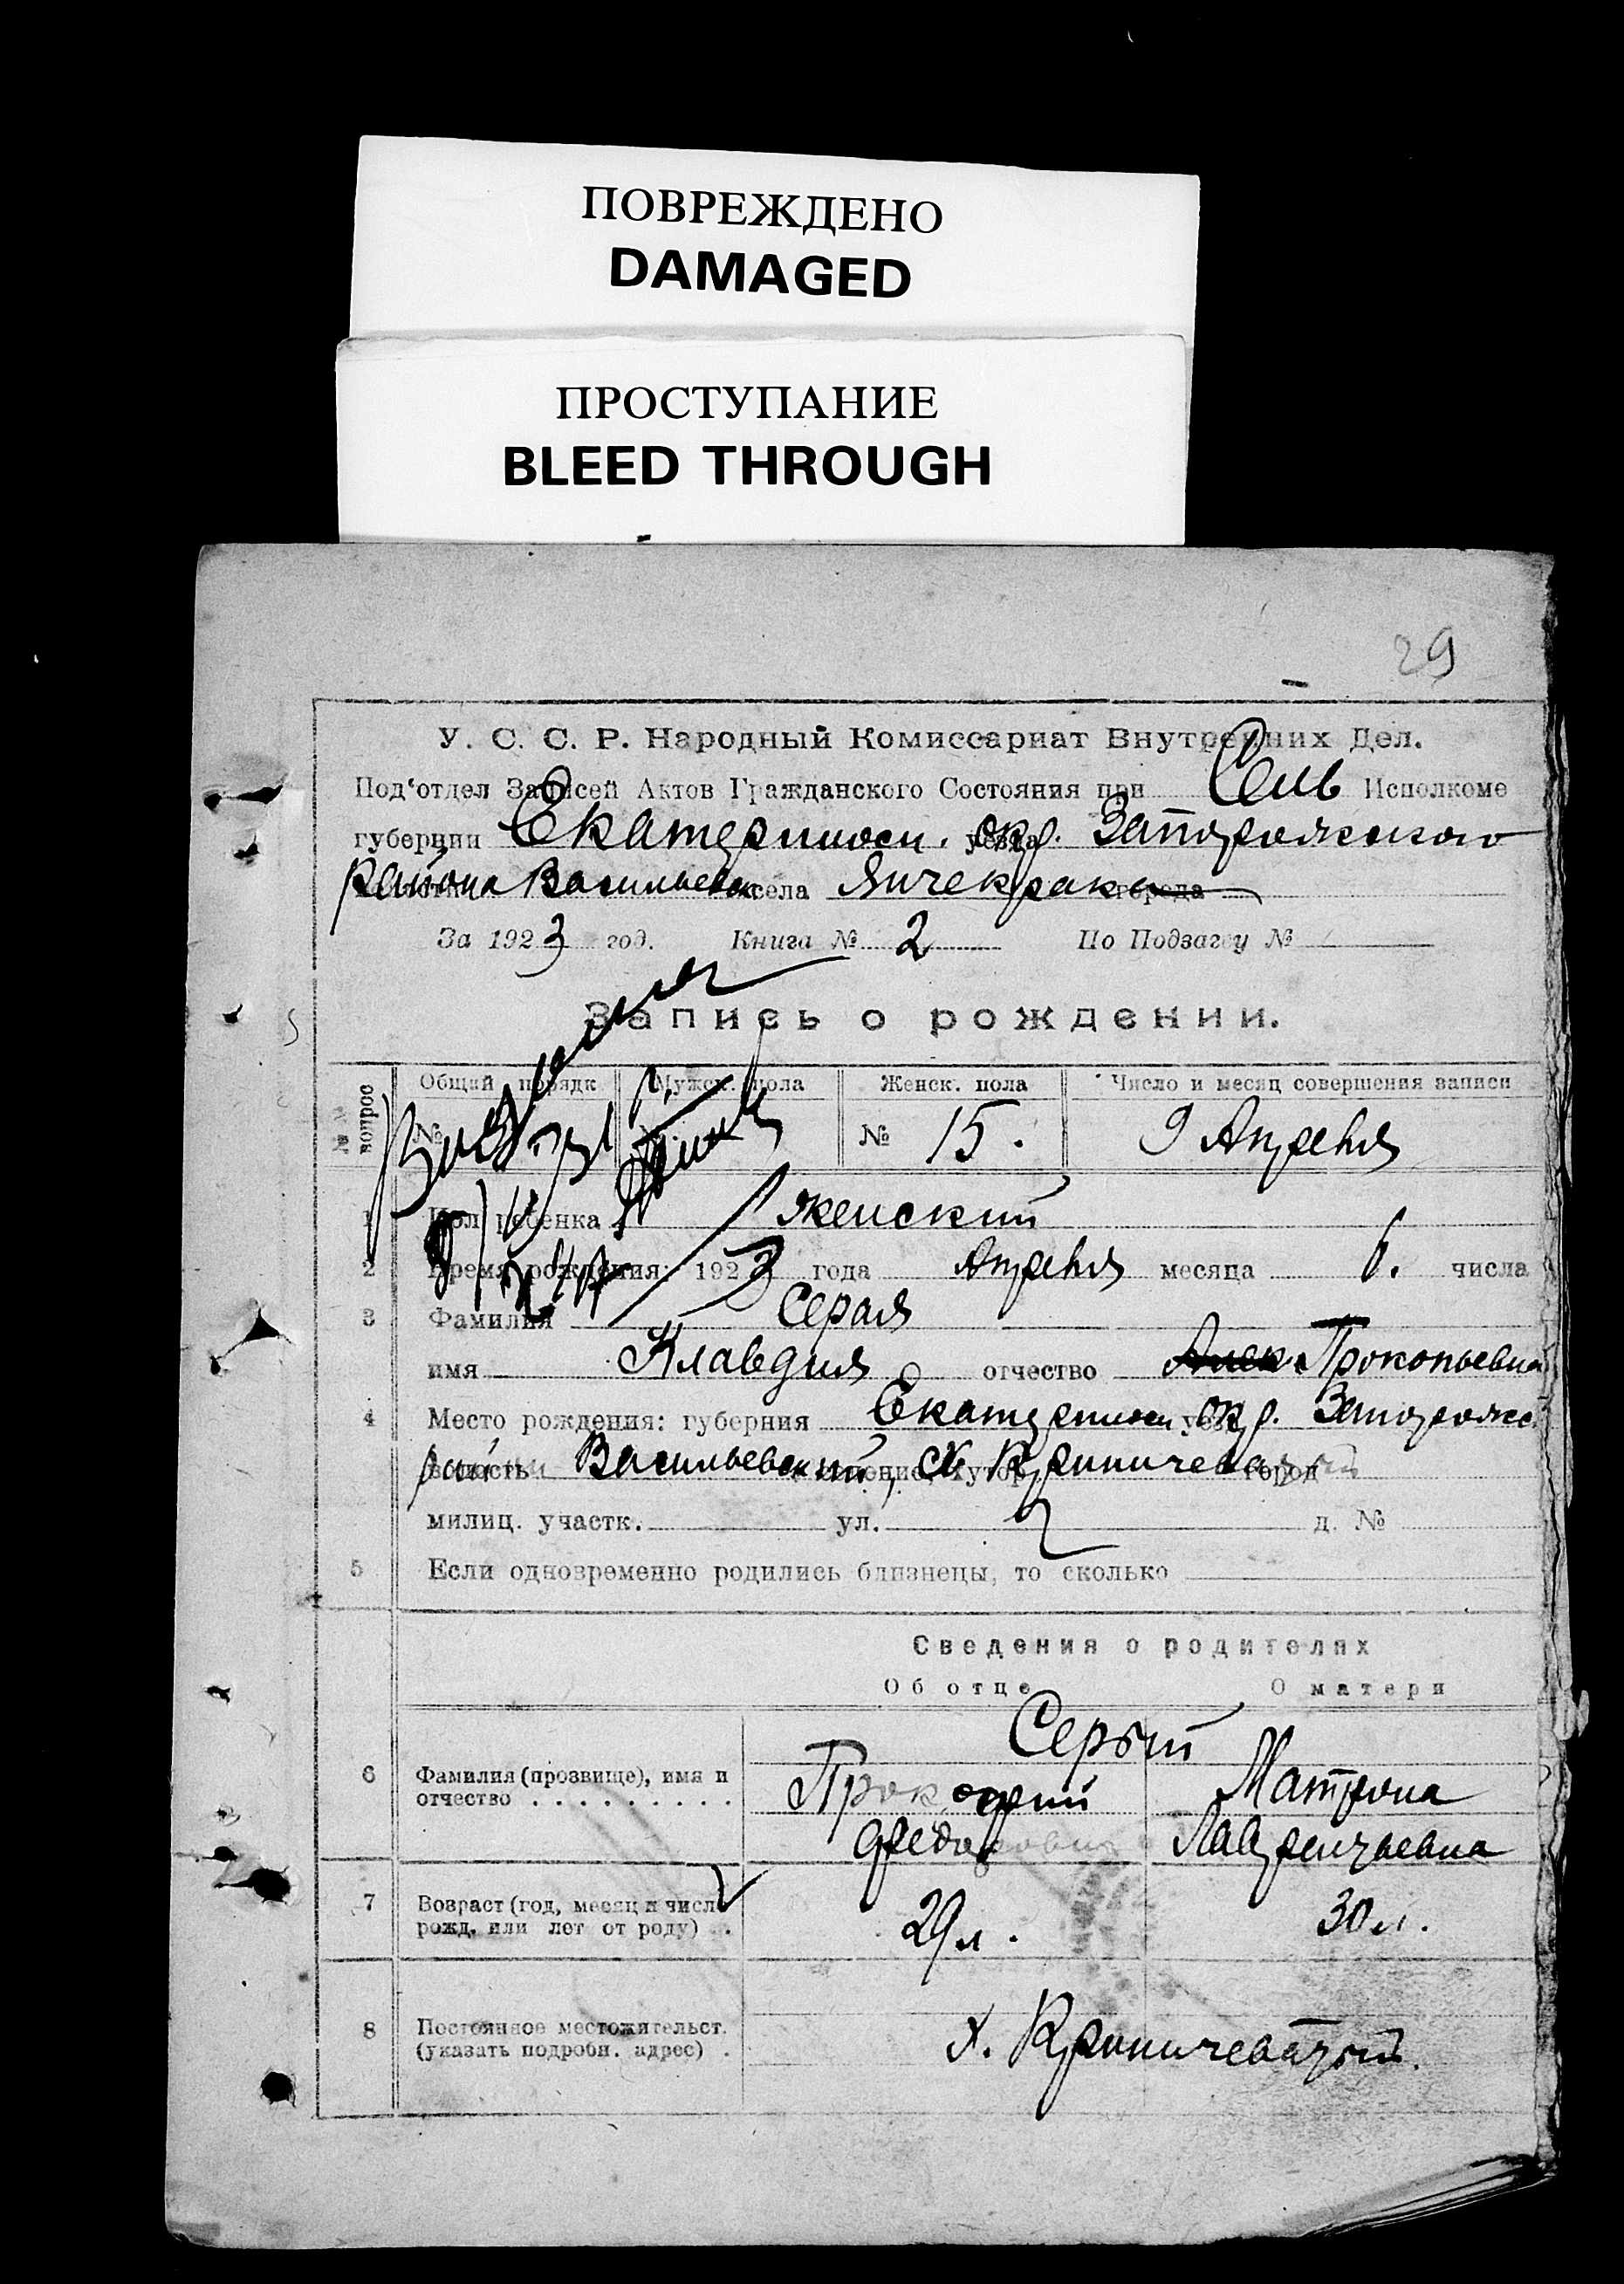 ПОВРЕЖДЕНО
DAMAGED
ПРОСТУПАНИЕ
BLEED THROUGH
29
У. С. С. Р. Народный Комиссариат Внутренних Дел.
Под‘отдел Записей Актов Гражданского Состояния при Сель Исполкоме
губернии Екатеринослв. окр. Запорожского
района Васильевск села Янчекраки города
За 1923 год. Книга № 2 По Подзагсу №
Запись о рождении.
№№ вопрос Общий порядк. Мужск. пола Женск. пола Число и месяц совершения записи
№ № 15. 9 Апреля
1 Пол ребенка женский
2 Время рождения: 1923 года Апреля месяца 6. числа
3 Фамилия Серая
имя Клавдия отчество Алек. Прокопьевна
4 Место рождения: губерния Екатеринослв окр. Запорожс
район Васильевский, х. Криничеватый город
милиц. участк. ул. д. №
5 Если одновременно родились близнецы, то сколько
Сведения о родителях
Об отце О матери
Серый
6 Фамилия (прозвище), имя и отчество Прокофий Матрона
Федор Лаврентьевна
7 Возраст (год, месяц и число рожд. или лет от роду) 29 л. 30 л.
8 Постоянное местожительст. (указать подробн. адрес) х. Криничеватый.